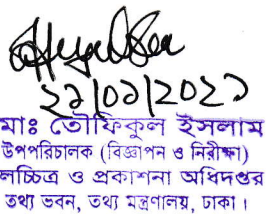 ২১/০১/২০২১
মাঃ তৌফিকুল ইসলাম
উপপরিচালক (বিজ্ঞাপন ও নিরীক্ষা)
লচ্চিত্র ও প্রকাশনা অধিদপ্তর
তথ্য ভবন, তথ্য মন্ত্রণালয়, ঢাকা।